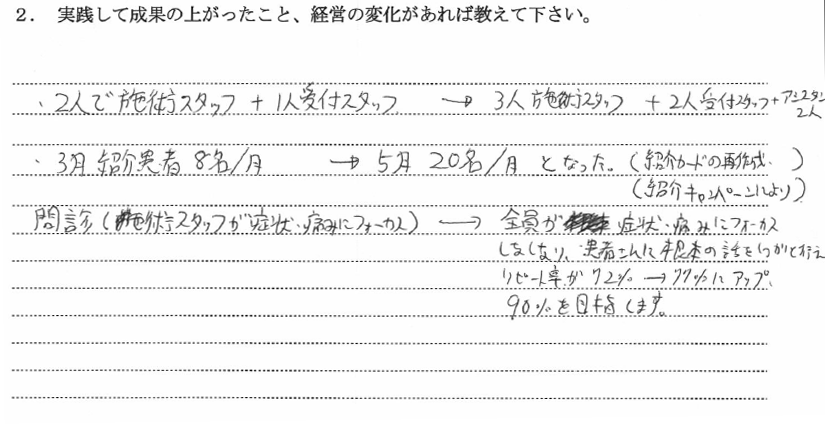 2. 実践して成果の上がったこと、経営の変化があれば教えて下さい。
・2人で施術スタッフ + 1人受付スタッフ → 3人施術スタッフ + 2人受付スタッフ+アシスタン
2人
・3月 紹介患者 8名/月 → 5月 20名/月 となった。(紹介カードの再作成、 )
(紹介キャンペーンにより)
問診(施術スタッフが症状・痛みにフォーカス) → 全員が 症状・痛みにフォーカス
しなくなり、患者さんに根本の話をしっかと行え
リピート率が 72% → 77%に アップ、
90%を目指します。